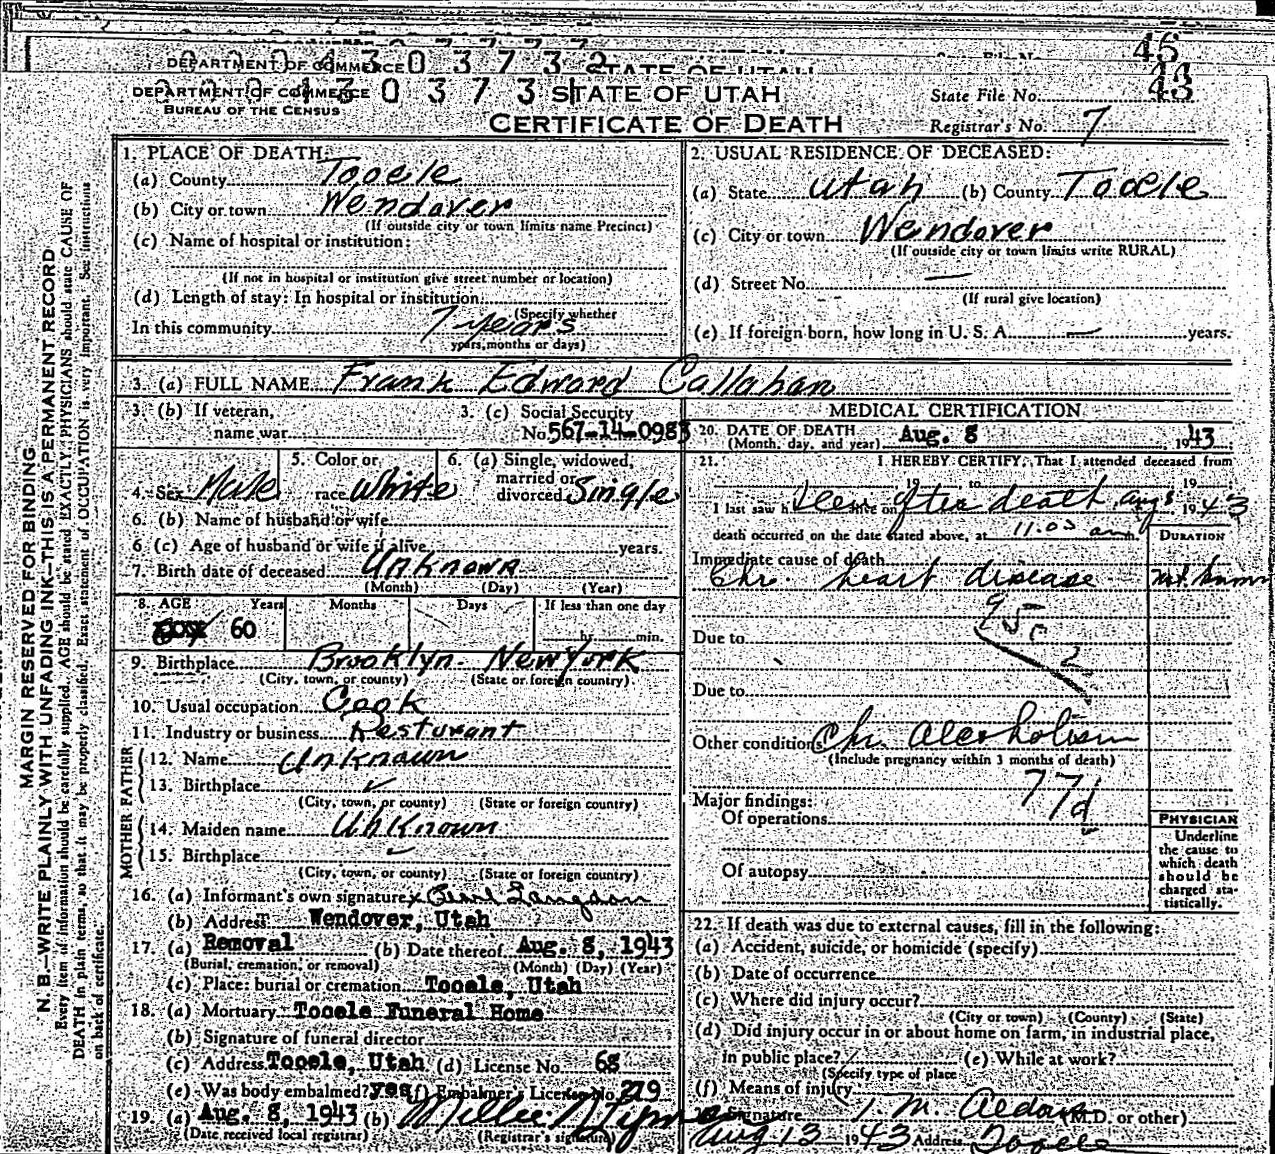 46
DEPARTMENT OF COMMERCE 0 3 7 3 2 STATE OF UTAH
DEPARTMENT OF COMMERCE 0 3 7 3 STATE OF UTAH
BUREAU OF THE CENSUS
State File No. 43
CERTIFICATE OF DEATH
Registrar's No. 7
MARGIN RESERVED FOR BINDING
N. B.—WRITE PLAINLY WITH UNFADING INK—THIS IS A PERMANENT RECORD
Every item of information should be carefully supplied. AGE should be stated EXACTLY. PHYSICIANS should state CAUSE OF
DEATH in plain terms, so that it may be properly classified. Exact statement of OCCUPATION is very important. See instructions
on back of certificate.
1. PLACE OF DEATH:
(a) County Tooele
(b) City or town Wendover
(If outside city or town limits name Precinct)
(c) Name of hospital or institution:
(If not in hospital or institution give street number or location)
(d) Length of stay: In hospital or institution
(Specify whether
In this community 7 years
years, months or days)
2. USUAL RESIDENCE OF DECEASED:
(a) State Utah (b) County Tooele
(c) City or town Wendover
(If outside city or town limits write RURAL)
(d) Street No. —
(If rural give location)
(e) If foreign born, how long in U. S. A. — years.
3. (a) FULL NAME Frank Edward Callahan
3. (b) If veteran,
name war
3. (c) Social Security
No. 567-14-0983
4. Sex Male
5. Color or
race White
6. (a) Single, widowed,
married or
divorced Single
6. (b) Name of husband or wife
6 (c) Age of husband or wife if alive years.
7. Birth date of deceased Unknown
(Month) (Day) (Year)
8. AGE Years Months Days If less than one day
60 hr. min.
9. Birthplace Brooklyn New York
(City, town, or county) (State or foreign country)
10. Usual occupation Cook
11. Industry or business Resturant
FATHER
12. Name Unknown
13. Birthplace
(City, town, or county) (State or foreign country)
MOTHER
14. Maiden name Unknown
15. Birthplace
(City, town, or county) (State or foreign country)
16. (a) Informant's own signature x Langdon
(b) Address Wendover, Utah
17. (a) Removal (b) Date thereof Aug. 8, 1943
(Burial, cremation, or removal) (Month) (Day) (Year)
(c) Place: burial or cremation Tooele, Utah
18. (a) Mortuary Tooele Funeral Home
(b) Signature of funeral director
(c) Address Tooele, Utah (d) License No. 68
(e) Was body embalmed? yes (f) Embalmer's License No. 219
19. (a) Aug. 8, 1943 (b) Millie
(Date received local registrar) (Registrar's signature)
MEDICAL CERTIFICATION
20. DATE OF DEATH
(Month, day, and year) Aug. 8 1943
21. I HEREBY CERTIFY, That I attended deceased from
19 to 19
I last saw h alive on Seen after death Aug 8 1943
death occurred on the date stated above, at 11.05 am
DURATION
Immediate cause of death
Chr. heart disease
95c
Due to
2
Due to
Other conditions Chr. alcoholism
(Include pregnancy within 3 months of death)
77d
Major findings:
Of operations
Of autopsy
PHYSICIAN
Underline
the cause to
which death
should be
charged sta-
tistically.
22. If death was due to external causes, fill in the following:
(a) Accident, suicide, or homicide (specify)
(b) Date of occurrence
(c) Where did injury occur?
(City or town) (County) (State)
(d) Did injury occur in or about home on farm, in industrial place,
in public place? (e) While at work?
(Specify type of place
(f) Means of injury
Signature J. M. (M.D. or other)
Aug 13 1943 Address Tooele